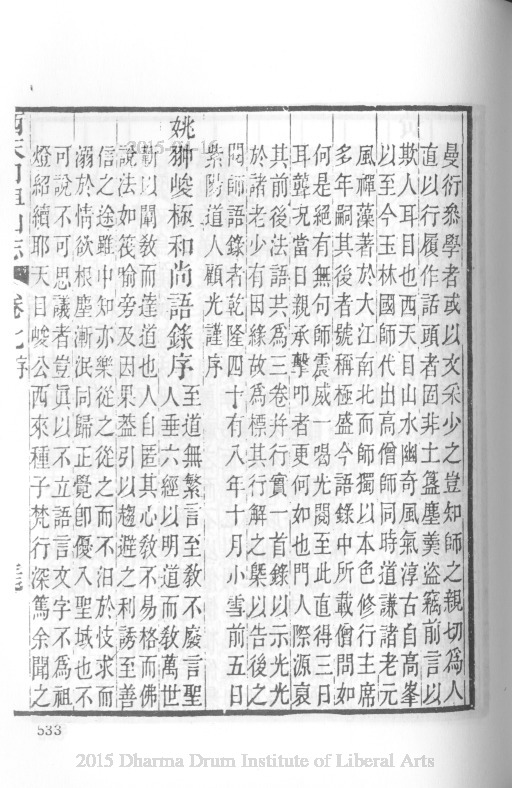 曼衍叅學者或以文采少之豈知師之親切爲人
直以行履作話頭者固非土簋塵羹盜竊前言以
欺人耳目也西天目山水幽奇風氣淳古自高峯
以至今玉林國師代出高僧師同時道謙諸老元
風禪藻著於大江南北而師獨以本色修行主席
多年嗣其後者號稱極盛今語錄中所載僧問如
何是絕有無句師震威一喝光閱至此直得三日
耳聾况當日親承擊叩者更何如也門人際源裒
其前後法語共爲三卷幷行實一首錄以示光光
於諸老少有因緣故爲標其行解之槩以告後之
閱師語錄者乾隆四十有八年十月小雪前五日
紫陽道人顧光謹序
姚獅峻極和尚語錄序 至道無繁言至敎不廢言聖
人垂六經以明道而敎萬世
蘄以闡敎而達道也人自匿其心敎不易格而佛
說法如筏喻旁及因果葢引以趨避之利誘至善
信之途雖中知亦樂從之從之而不汨於忮求而
溺於情欲根塵漸泯同歸正覺卽優入聖域也不
可說不可思議者豈眞以不立語言文字不爲祖
燈紹續耶天目峻公西來種子梵行深篤余聞之
西天目祖山志 卷七 序
533
2015 Dharma Drum Institute of Liberal Arts